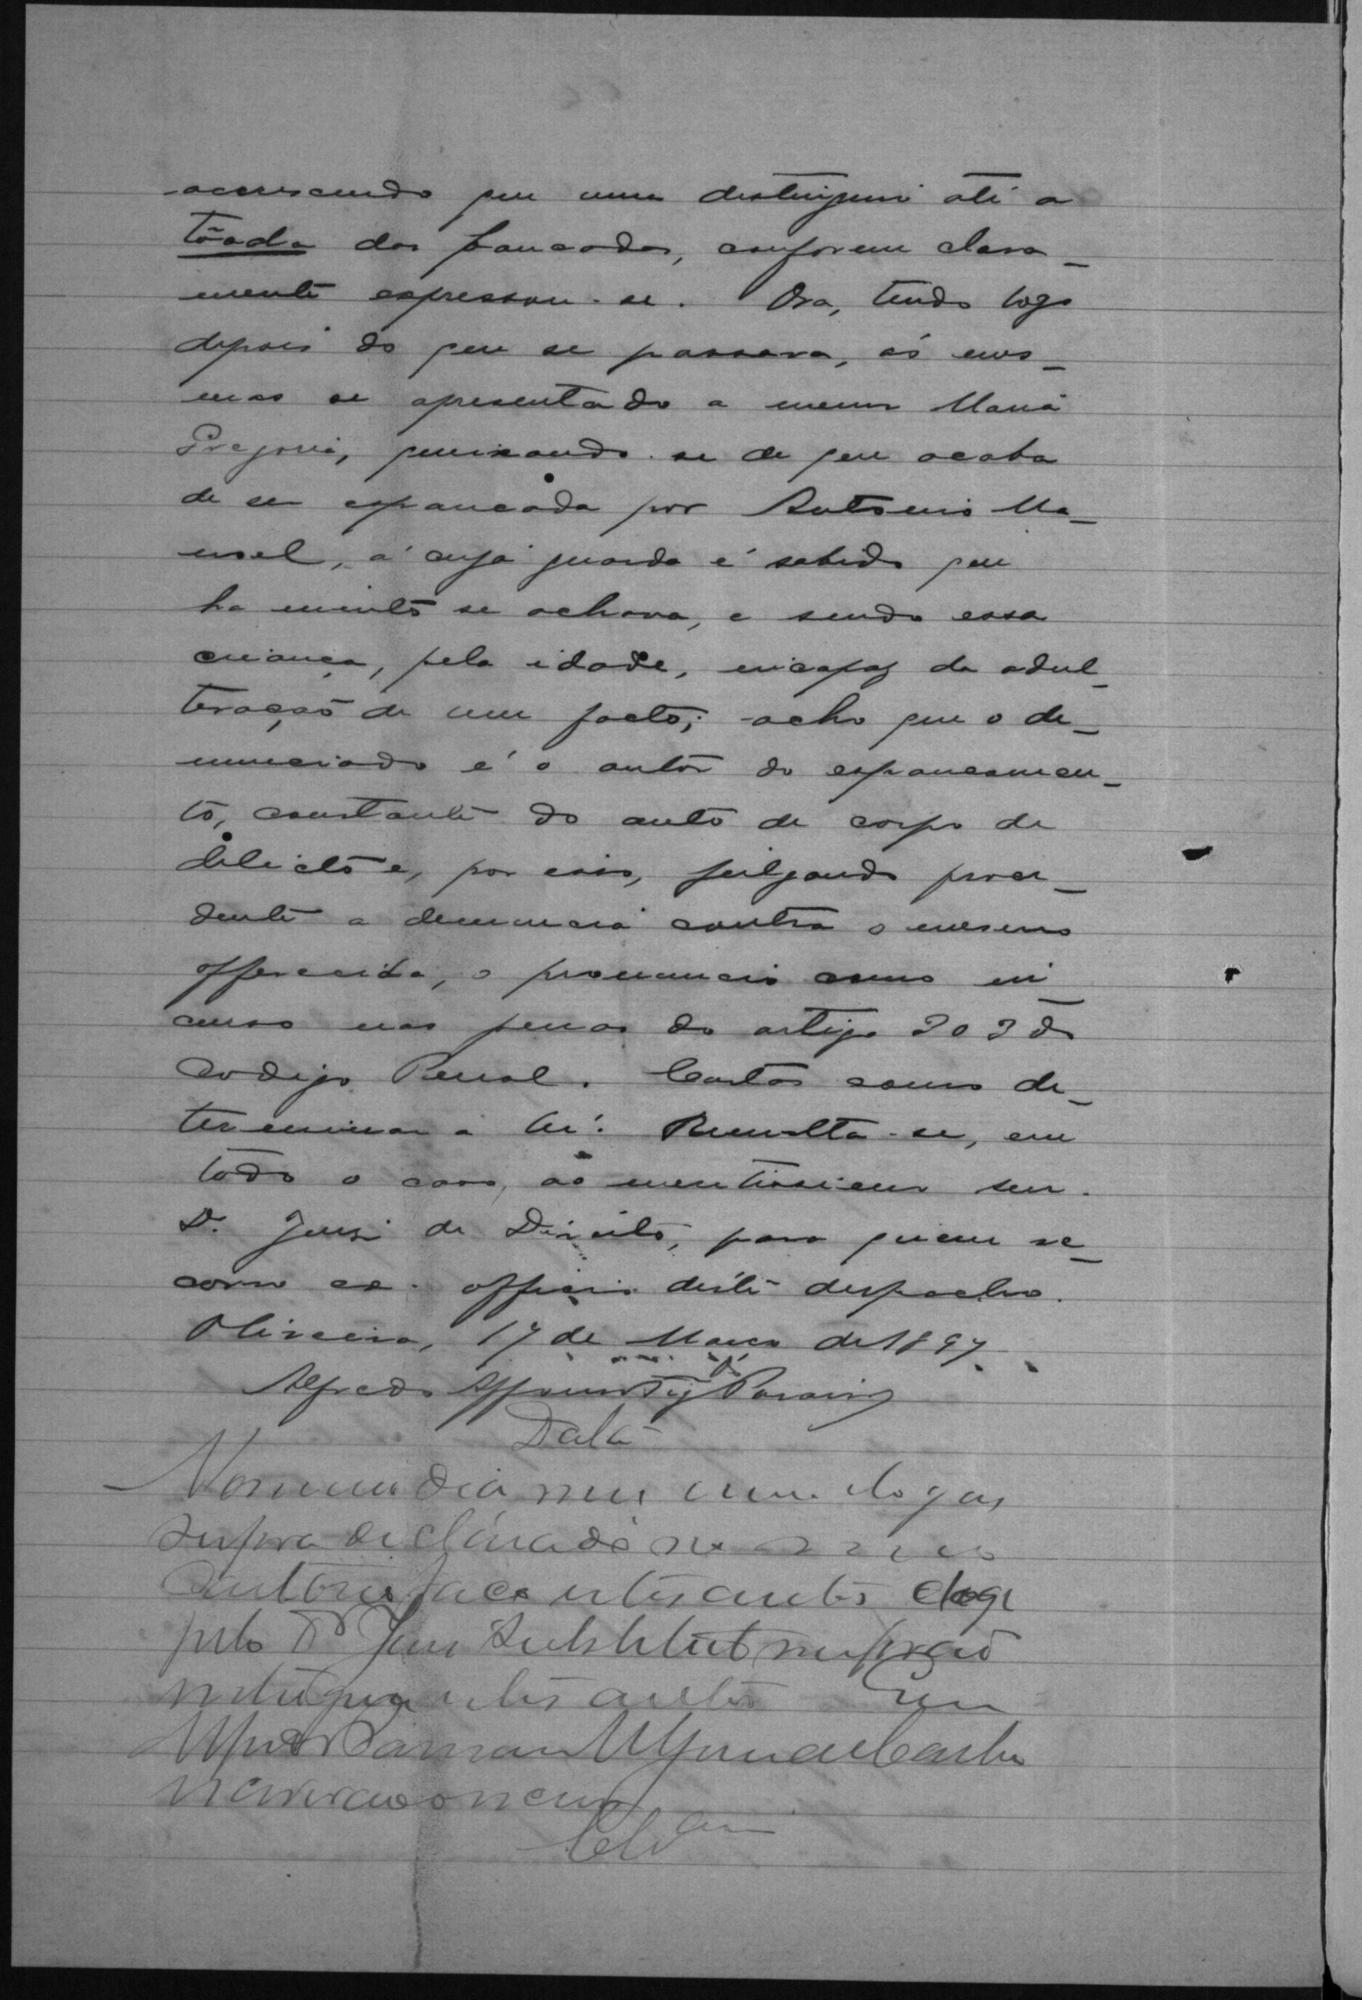 accrescendo que uma distingui até a
toada das pancadas, conforme clara-
mente expressou-se. Ora, tendo logo
depois do que se passava, ás mes-
mas se apresentado a menor Maria
Gregoria, queixando-se de que acaba
de ser espancada por Antonio Ma-
noel, á cuja guarda é sabido que
ha muito se achava, e sendo essa
criança, pela idade, incapaz da adul-
teração de um facto; acho que o de-
nunciado é o autor do espancamen-
to, constante do auto de corpo de
delicto e, por isso, julgando proce-
dente a denuncia contra o mesmo
offerecida, o pronuncio como in
curso nas penas do artigo 303 do
Codigo Penal. Custas como de-
terminar a lei. Remetta-se, em
todo o caso, ao meritissimo snr.
Dr. Juiz de Direito, para quem re-
corro ex-officio deste despacho.
Oliveira, 17 de Março de 1897
Alfredo
Data
No mesmo dia mez anno e logar
supra declarado no
Cartorio faço estes autos
pelo Dr Juiz Substituto
estes autos Eu
de Castro
Escrivão o escrevi